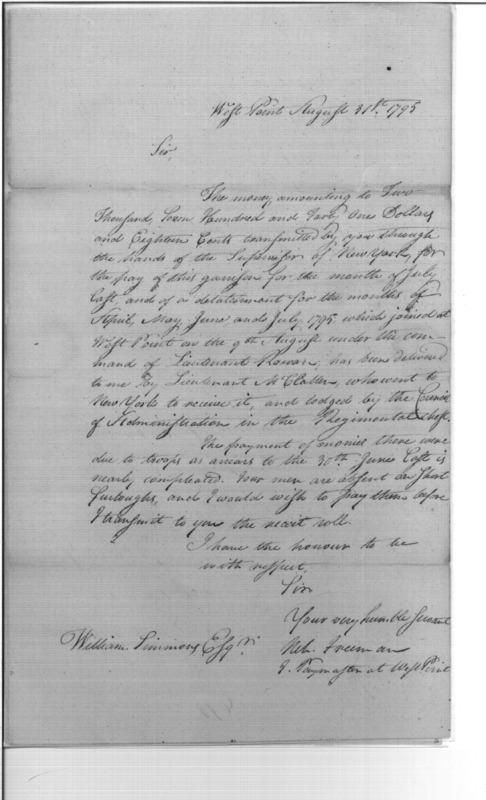 West Point August 31st. 1795
Sir,
The money amounting to Two
Thousand, Seven Hundred and Forty One Dollars
and Eighteen Cents transmitted by you through
the hands of the Supervisor of New York, for
the pay of this garrison for the month of July
last, and of a detatchment for the months of
April, May, June and July 1795 which joined at
West Point on the 9th August under the com-
mand of Lieutenant Rowan, has been delivered
to me by Lieutenant McClallen, who went to
New York to receive it, and lodged by the Council
of Administration in the Regimental Chest.
The payment of monies there were
due to troops as arrears to the 30th June last is
nearly compleated. Four men are absent on short
furloughs, and I would wish to pay them before
I transmit to you the receit roll.
I have the honour to be
with respect,
Sir
Your very humble Servant
Neh. Freeman
Paymaster at West Point
William Simmons Esqr.